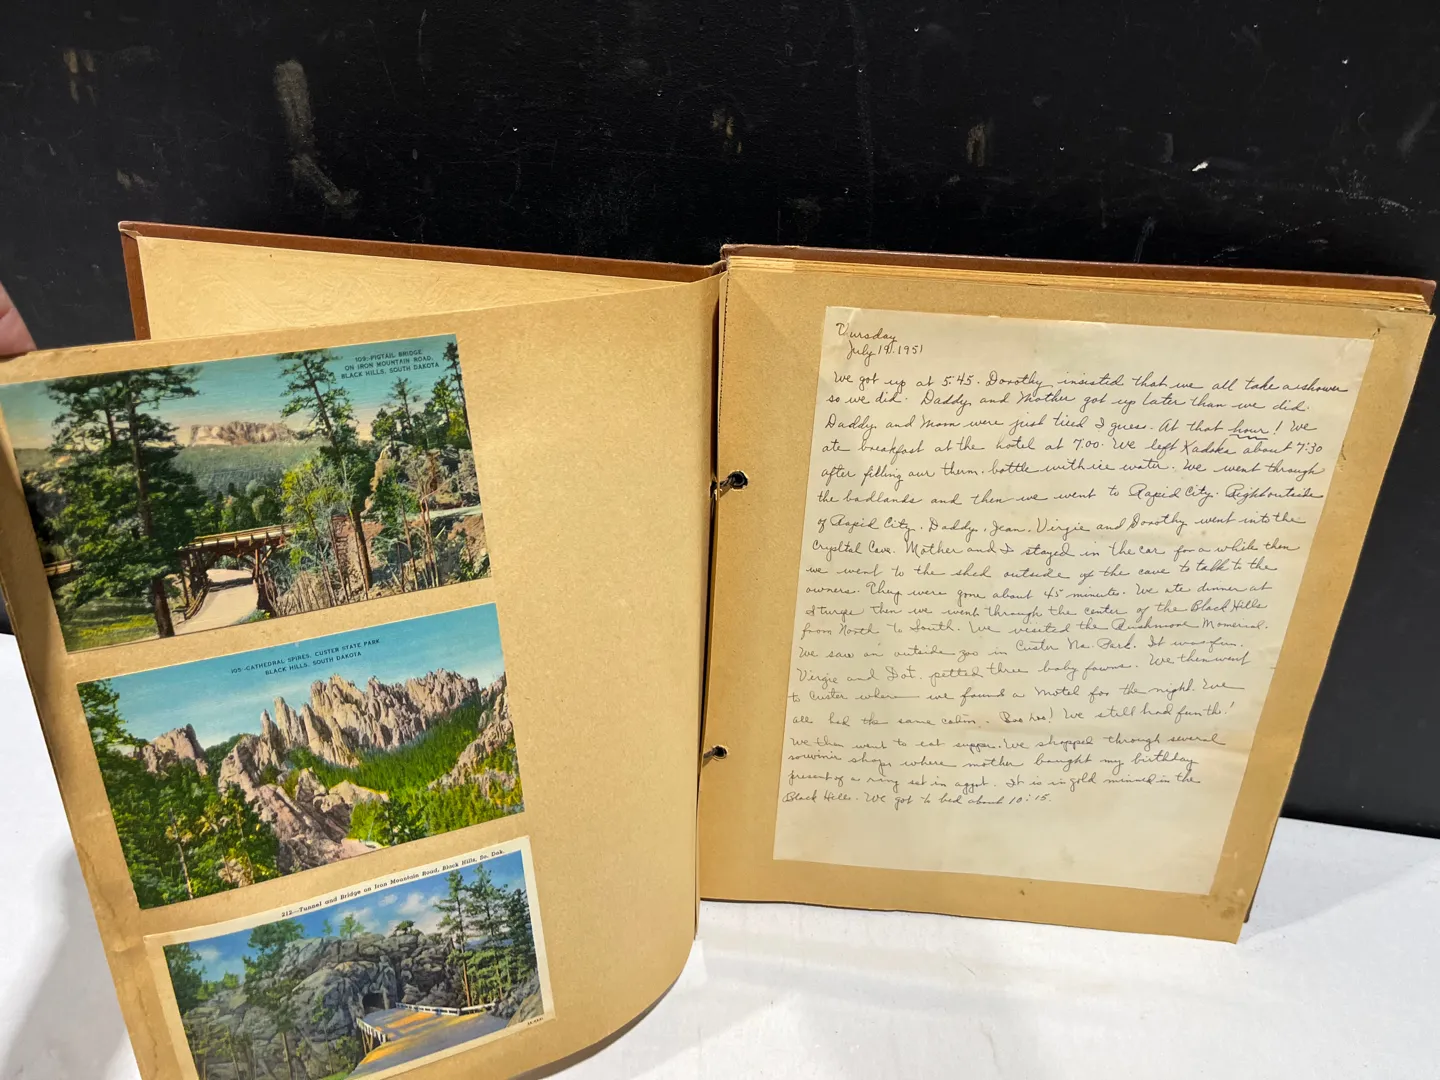 109:-PIGTAIL BRIDGE
ON IRON MOUNTAIN ROAD,
BLACK HILLS, SOUTH DAKOTA
105:-CATHEDRAL SPIRES, CUSTER STATE PARK
BLACK HILLS, SOUTH DAKOTA
212—Tunnel and Bridge on Iron Mountain Road, Black Hills, So. Dak.
Thursday
July 19, 1951
We got up at 5:45. Dorothy insisted that we all take a shower
so we did. Daddy and Mother got up later than we did.
Daddy and Mom were just tired I guess. At that hour! We
ate breakfast at the hotel at 7:00. We left Kadoka about 7:30
after filling our therm. bottle with ice water. We went through
the badlands and then we went to Rapid City. Right outside
of Rapid City, Daddy, Jean, Virgie and Dorothy went into the
Crystal Cave. Mother and I stayed in the car for a while then
we went to the shed outside of the cave to talk to the
owners. They were gone about 45 minutes. We ate dinner at
Sturge then we went through the center of the Black Hills
from North to South. We visited the Rushmore Momerial.
We saw an outside zoo in Custer Na. Park. It was fun.
Virgie and Dot. petted three baby fawns. We then went
to Custer where we found a Motel for the night. We
all had the same cabin. Boo hoo! We still had fun tho!
We then went to eat supper. We shopped through several
souvinir shops where mother bought my birthday
present of a ring set in aggat. It is in gold minned in the
Black Hills. We got to bed about 10:15.